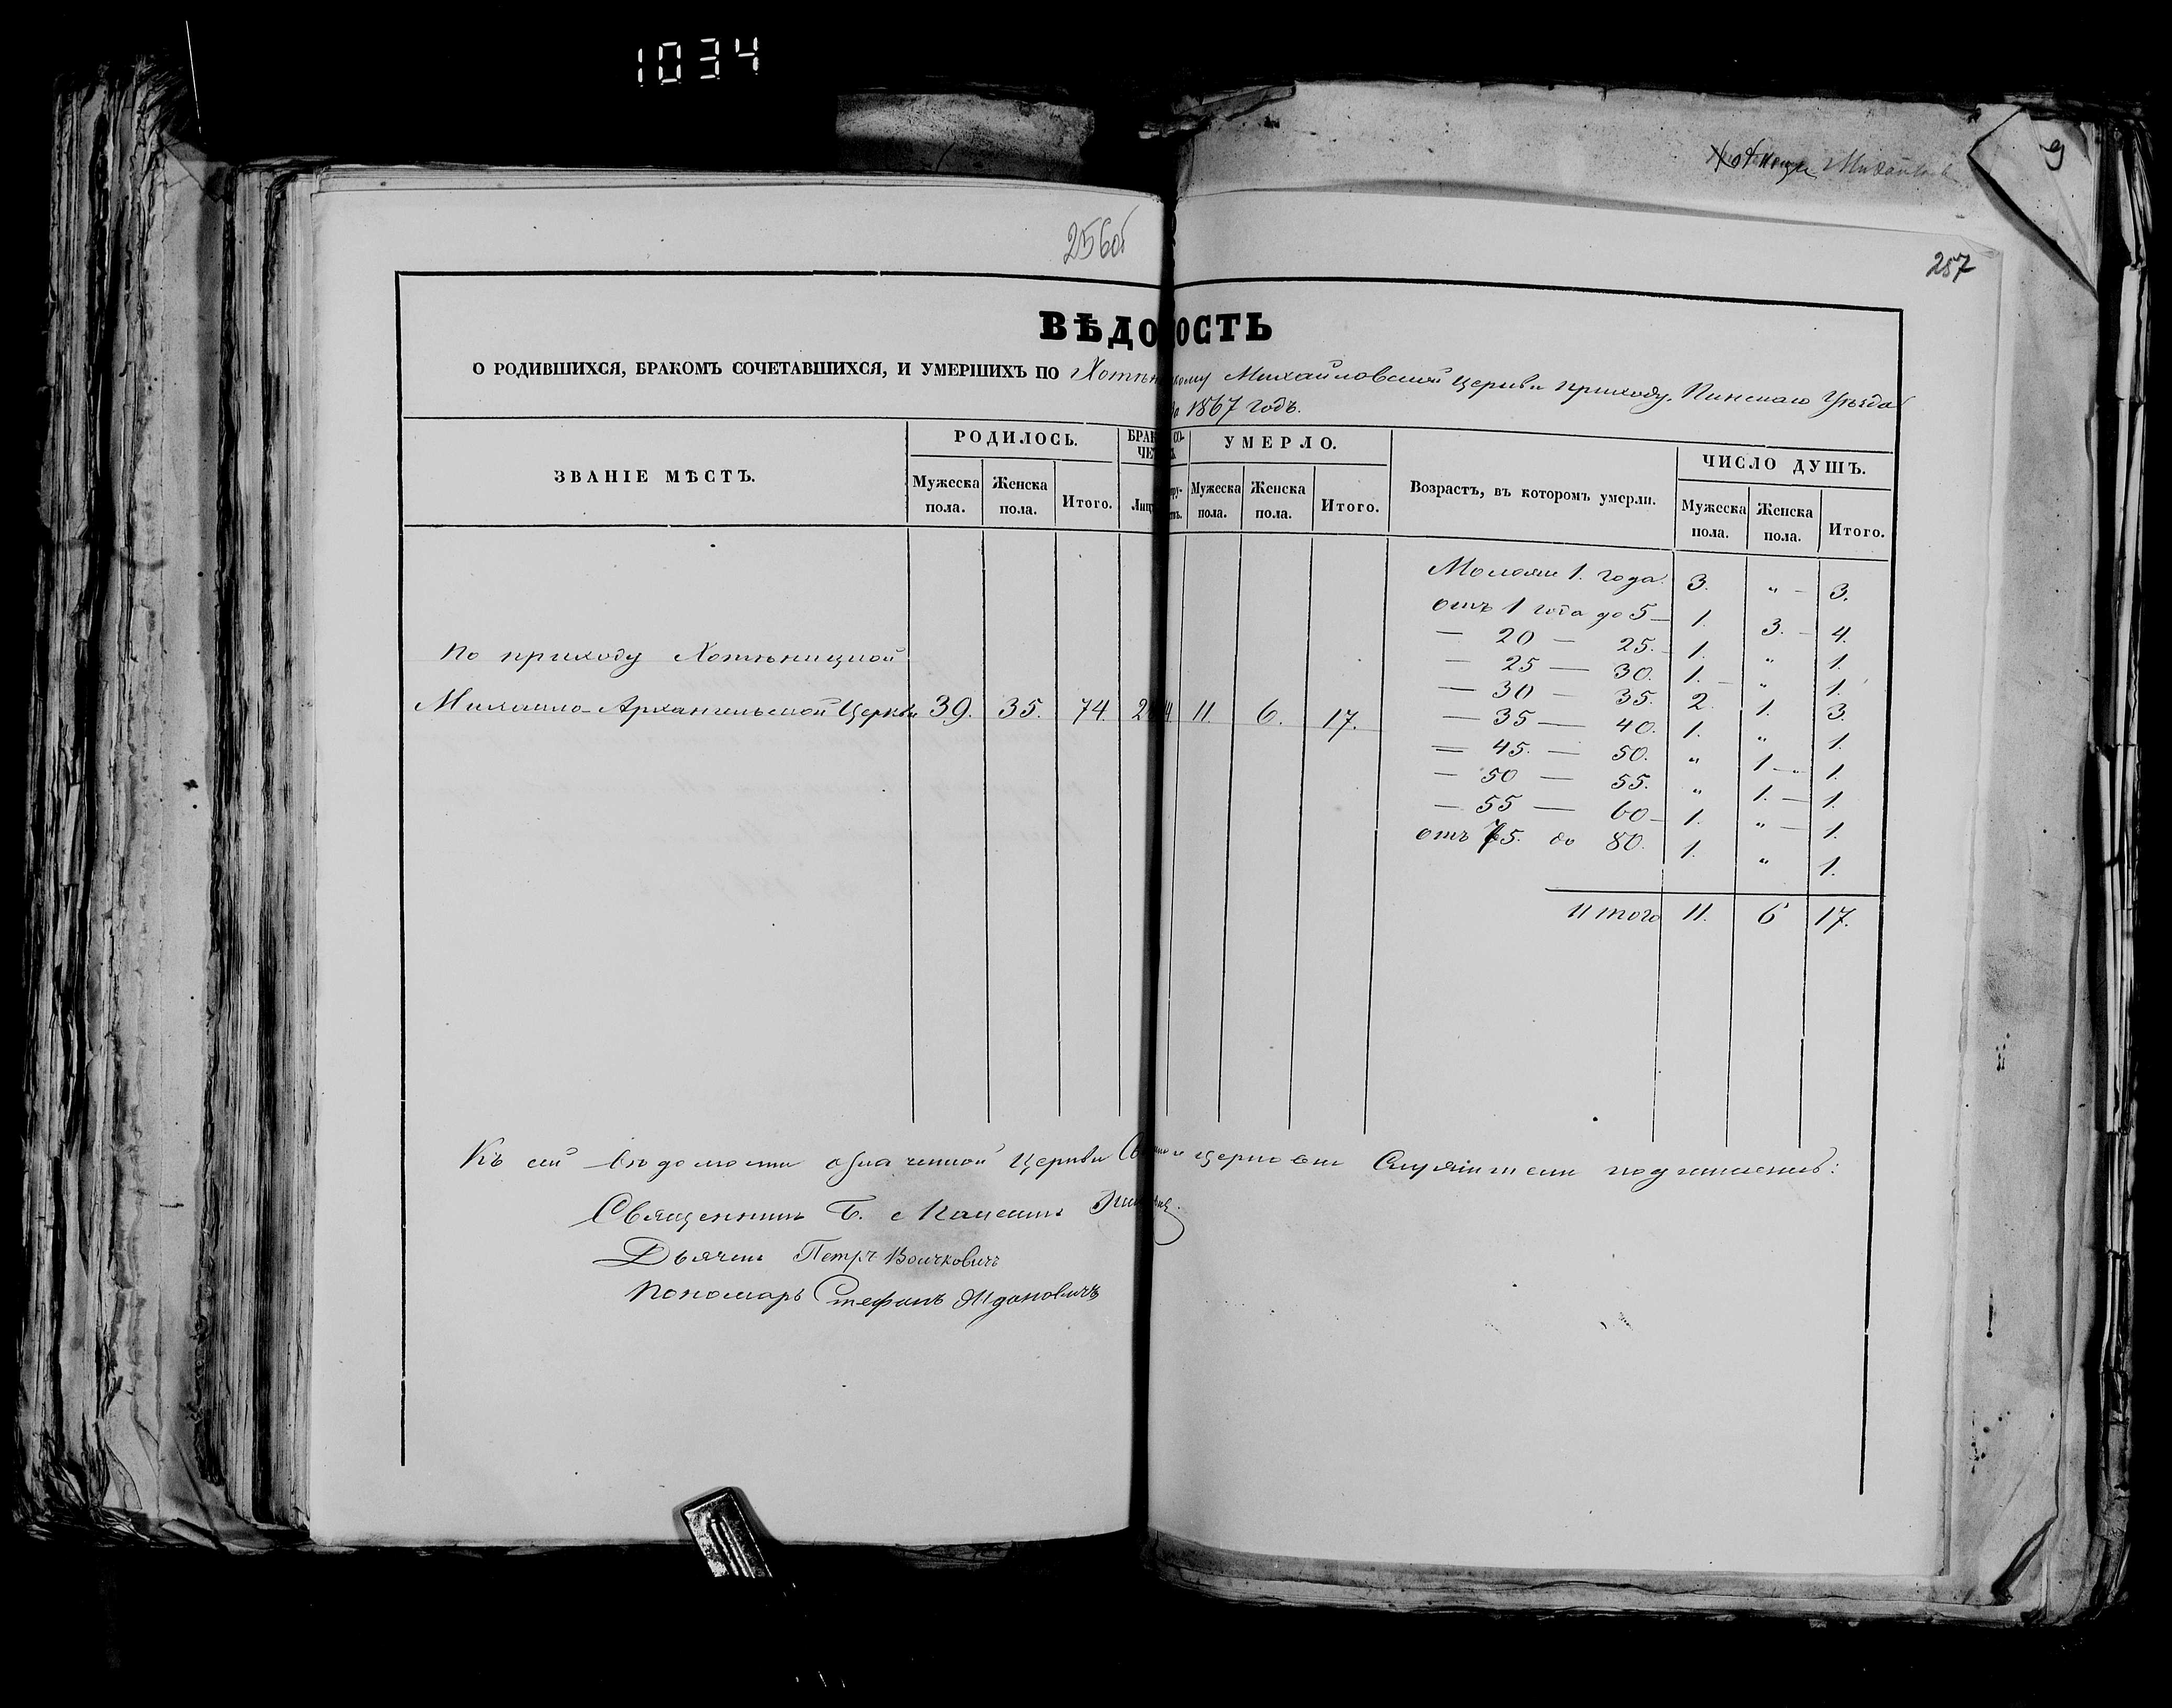 1034
9
256об
257
ВѢДОМОСТЬ
О РОДИВШИХСЯ, БРАКОМЪ СОЧЕТАВШИХСЯ, И УМЕРШИХЪ ПО Хотѣницкому Михайловской Церкви приходу, Пинскаго Уѣзда
за 1867 годъ.
ЗВАНІЕ МѢСТЪ. РОДИЛОСЬ. БРАК СО- ЧЕТ УМЕРЛО. Возрастъ, въ котором умерли. ЧИСЛО ДУШЪ.
Мужеска пола. Женска пола. Итого. Лиц Мужеска пола. Женска пола. Итого. Мужеска пола. Женска пола. Итого.
Молояи 1. года. 3. " - 3.
отъ 1 года до 5 - 1. 3. - 4.
— 20 — 25. 1. " 1.
— 25 — 30. 1. - " 1.
— 30 — 35. 2. 1. 3.
— 35 — 40. 1. " 1.
— 45. — 50. " 1 - 1.
— 50 — 55. " 1. - 1.
— 55 — 60 - 1. " - 1.
отъ 75. до 80. 1. " 1.
Итого 11. 6 17.
По приходу Хотѣницкой
Михаило-Архангельской Церкви 39. 35. 74. 11. 6. 17.
Къ сей вѣдомости означенной Церкви Священно и церковно Служители подписались:
Священникъ
Дьячекъ Петръ Волчковичъ
Пономарь Стефанъ Ждановичъ